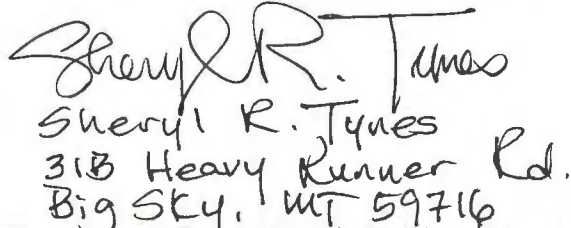 Sheryl R. Tynes
Sheryl R. Tynes
31B Heavy Runner Rd.
Big Sky, MT 59716